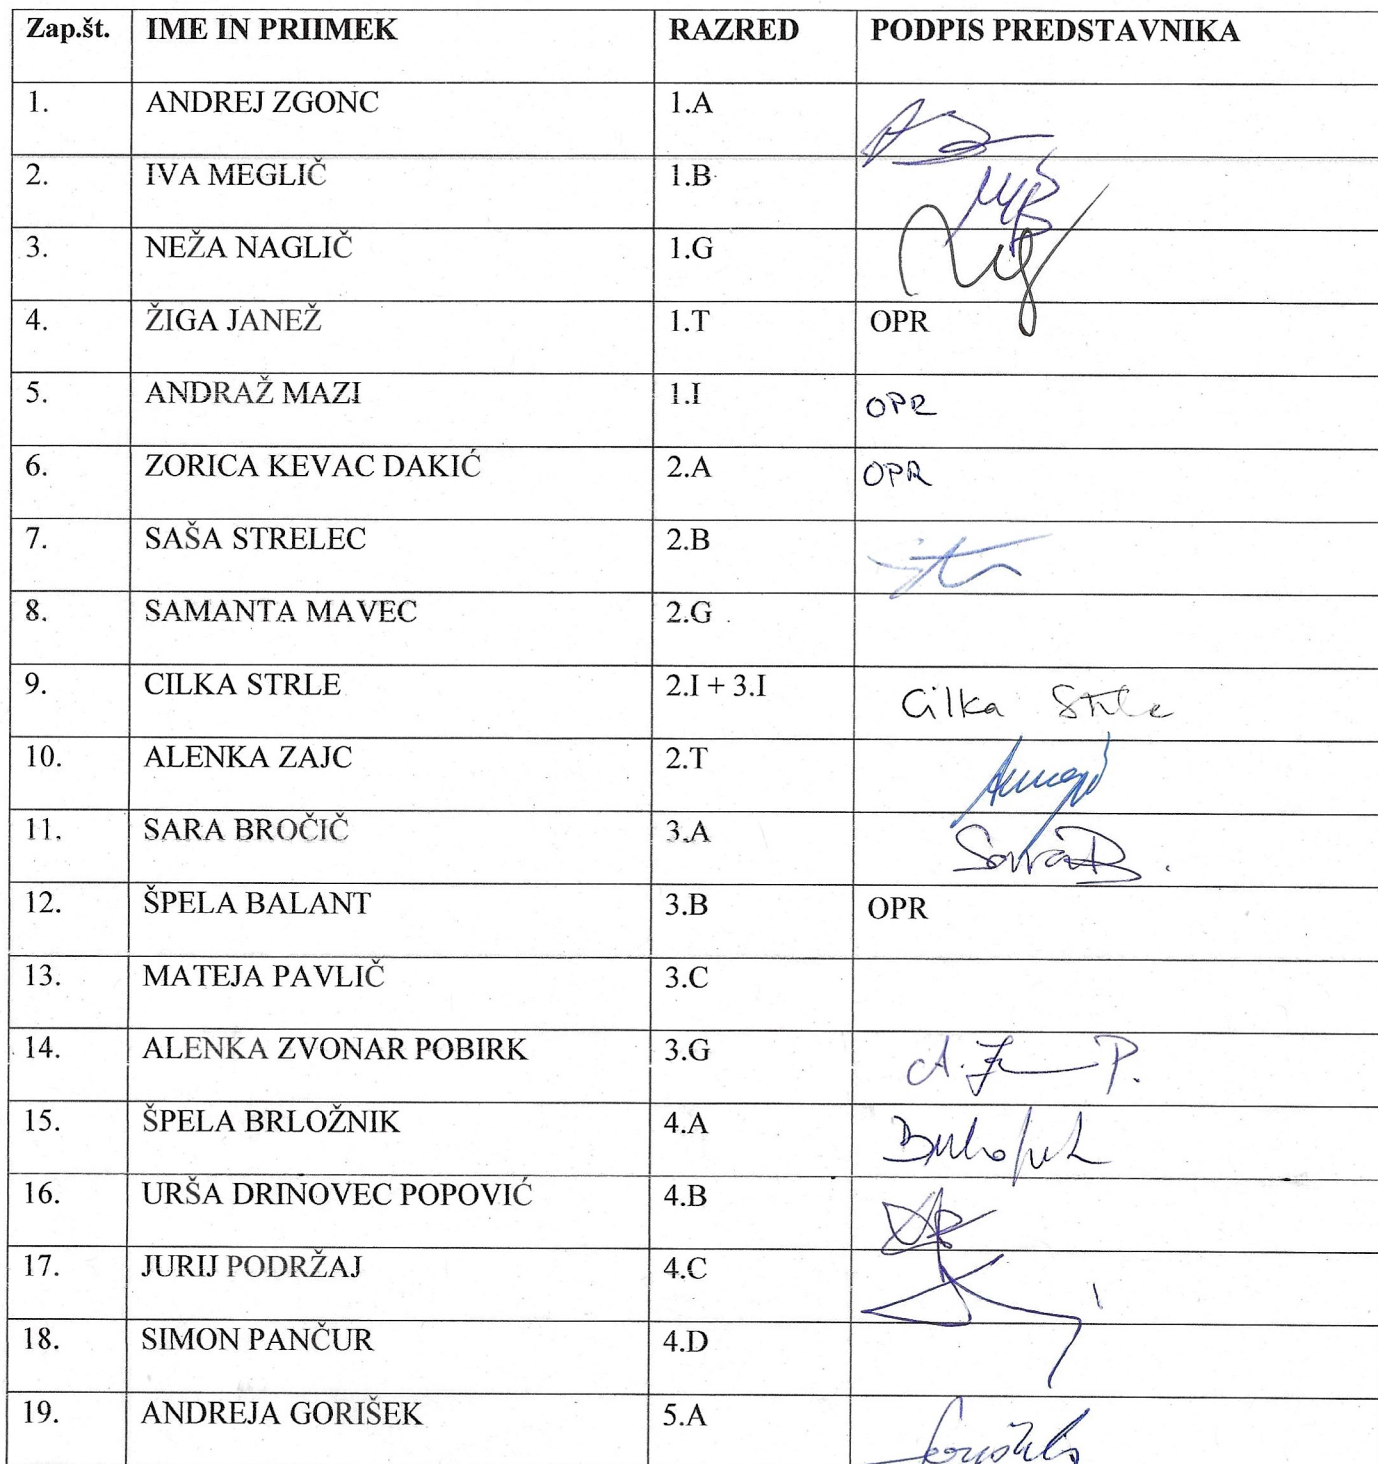 Zap.št. IME IN PRIIMEK RAZRED PODPIS PREDSTAVNIKA
1. ANDREJ ZGONC 1.A
2. IVA MEGLIČ 1.B
3. NEŽA NAGLIČ 1.G
4. ŽIGA JANEŽ 1.T OPR
5. ANDRAŽ MAZI 1.I OPR
6. ZORICA KEVAC DAKIĆ 2.A OPR
7. SAŠA STRELEC 2.B
8. SAMANTA MAVEC 2.G
9. CILKA STRLE 2.I + 3.I Cilka Strle
10. ALENKA ZAJC 2.T
11. SARA BROČIČ 3.A Sara B.
12. ŠPELA BALANT 3.B OPR
13. MATEJA PAVLIČ 3.C
14. ALENKA ZVONAR POBIRK 3.G
15. ŠPELA BRLOŽNIK 4.A
16. URŠA DRINOVEC POPOVIĆ 4.B
17. JURIJ PODRŽAJ 4.C
18. SIMON PANČUR 4.D
19. ANDREJA GORIŠEK 5.A